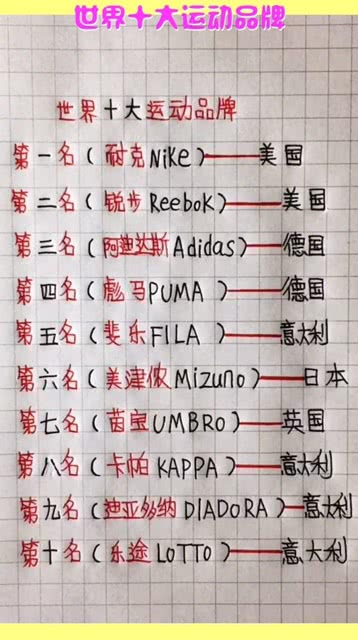 世界十大运动品牌
世界十大运动品牌
第一名(耐克Nike)——美国
第二名(锐步Reebok)——美国
第三名(阿迪达斯Adidas)——德国
第四名(彪马PUMA)——德国
第五名(斐乐FILA)——意大利
第六名(美津侬Mizuno)——日本
第七名(茵宝UMBRO)——英国
第八名(卡帕KAPPA)——意大利
第九名(迪亚多纳DIADORA)——意大利
第十名(乐途LOTTO)——意大利